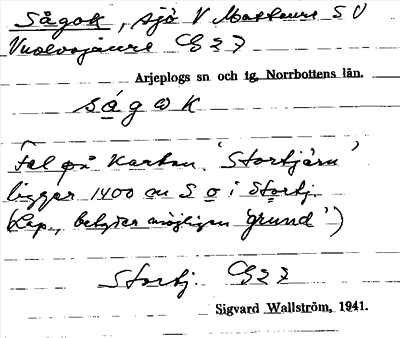 Sågok, sjö V Mattaure S V
Vuolvojaure G 2 7
Arjeplogs sn och tg, Norrbottens län.
sågok
Fel på kartan. 'Stortjärn'
ligger 1400 m S o i Stortj.
(Lap., betyder möjligen 'grund')
Stortj G 2 7
Sigvard Wallström, 1941.